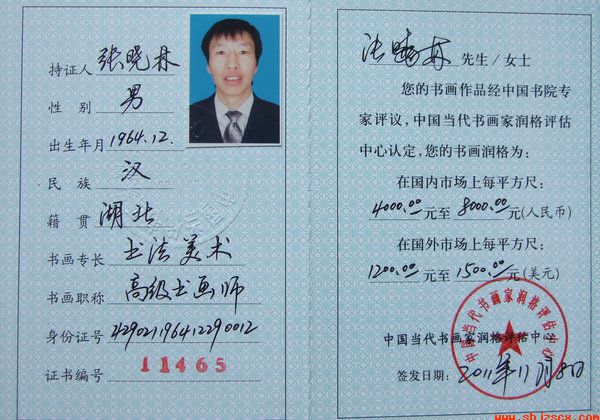 持证人 张晓林
性 别 男
出生年月 1964.12.
民 族 汉
籍 贯 湖北
书画专长 书法美术
书画职称 高级书画师
身份证号 422902196412290012
证书编号 11465
张晓林 先生/女士
您的书画作品经中国书院专
家评议,中国当代书画家润格评估
中心认定,您的书画润格为:
在国内市场上每平方尺:
4000.00元至8000.00元(人民币)
在国外市场上每平方尺:
1200.00元至1500.00元(美元)
中国当代书画家润格评估中心
中国当代书画家润格评估中心
签发日期: 2011年11月8日